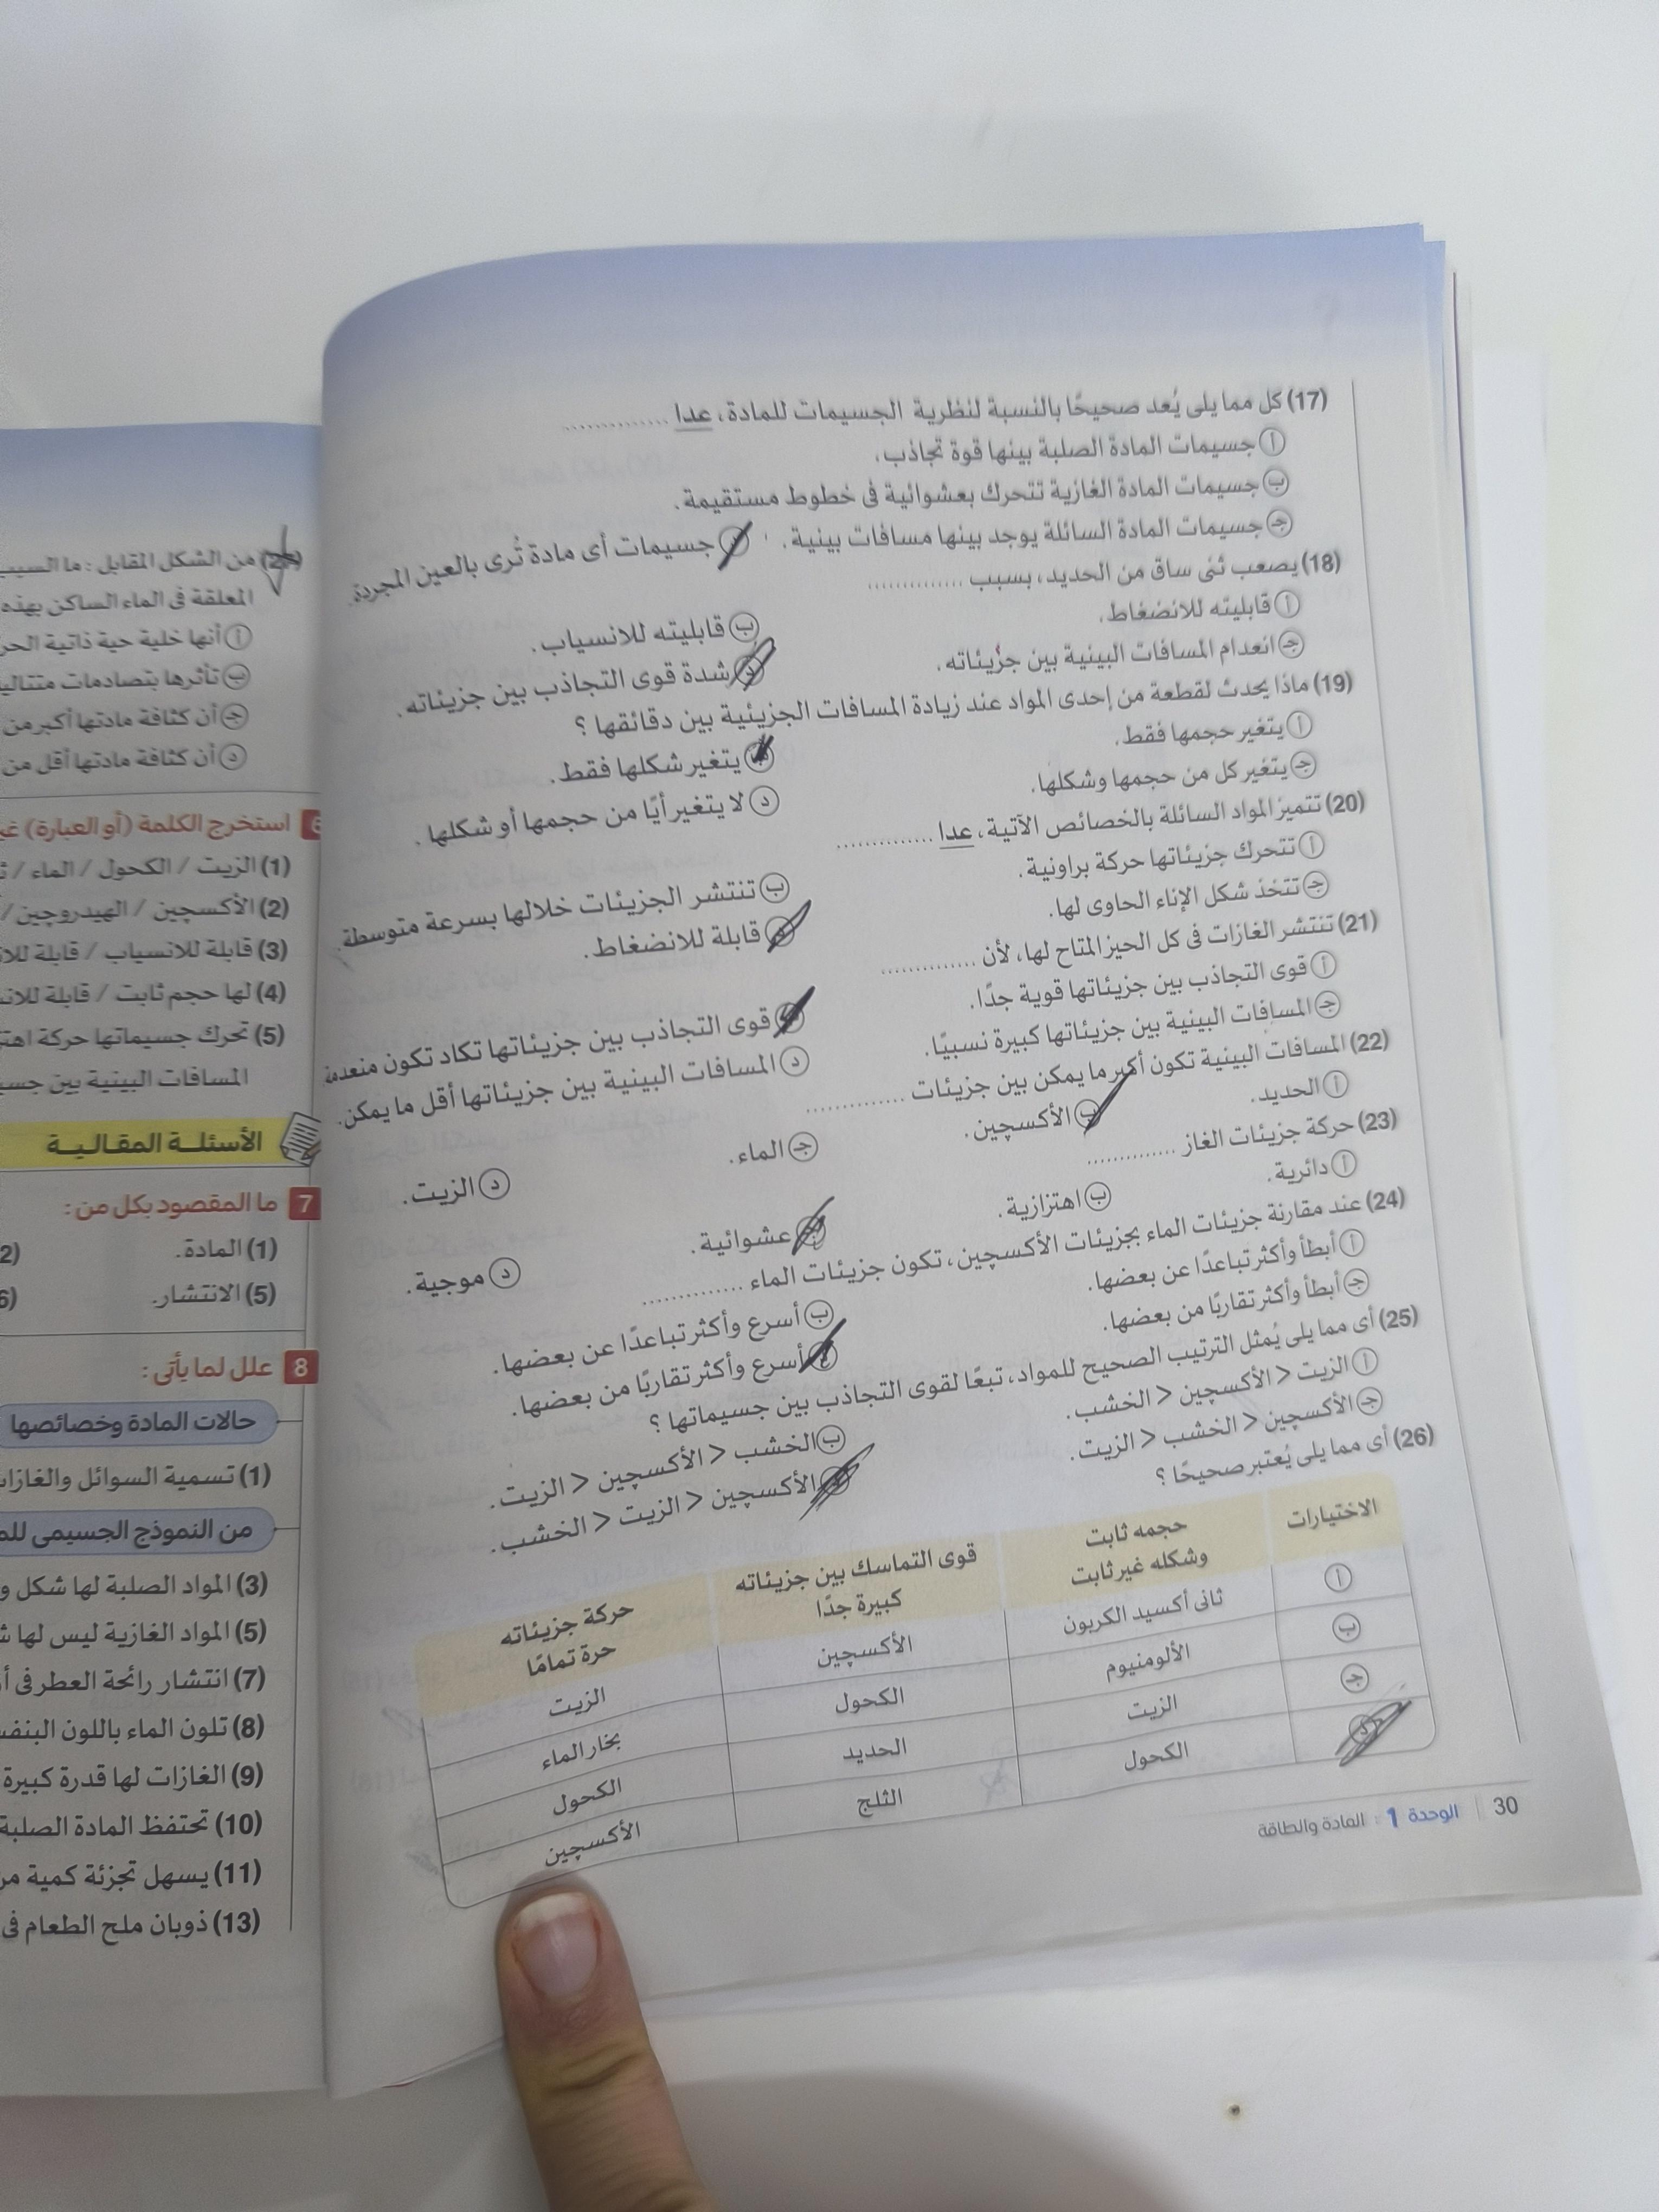 (17) كل مما يلى يُعد صحيحًا بالنسبة لنظرية الجسيمات للمادة، عدا ..............
أ جسيمات المادة الصلبة بينها قوة تجاذب.
ب جسيمات المادة الغازية تتحرك بعشوائية فى خطوط مستقيمة.
جـ جسيمات المادة السائلة يوجد بينها مسافات بينية. د جسيمات أى مادة تُرى بالعين المجردة.
(18) يصعب ثنى ساق من الحديد، بسبب ..............
أ قابليته للانضغاط. ب قابليته للانسياب.
جـ انعدام المسافات البينية بين جزيئاته. د شدة قوى التجاذب بين جزيئاته.
(19) ماذا يحدث لقطعة من إحدى المواد عند زيادة المسافات الجزيئية بين دقائقها ؟
أ يتغير حجمها فقط. ب يتغير شكلها فقط.
جـ يتغير كل من حجمها وشكلها. د لا يتغير أيًا من حجمها أو شكلها.
(20) تتميز المواد السائلة بالخصائص الآتية، عدا ..............
أ تتحرك جزيئاتها حركة براونية. ب تنتشر الجزيئات خلالها بسرعة متوسطة.
جـ تتخذ شكل الإناء الحاوى لها. د قابلة للانضغاط.
(21) تنتشر الغازات فى كل الحيز المتاح لها، لأن ..............
أ قوى التجاذب بين جزيئاتها قوية جدًا. ب قوى التجاذب بين جزيئاتها تكاد تكون منعدمة
جـ المسافات البينية بين جزيئاتها كبيرة نسبيًا. د المسافات البينية بين جزيئاتها أقل ما يمكن.
(22) المسافات البينية تكون أكبر ما يمكن بين جزيئات ..............
أ الحديد. ب الأكسچين. جـ الماء. د الزيت.
(23) حركة جزيئات الغاز ..............
أ دائرية. ب اهتزازية. جـ عشوائية. د موجية.
(24) عند مقارنة جزيئات الماء بجزيئات الأكسچين، تكون جزيئات الماء ..............
أ أبطأ وأكثر تباعدًا عن بعضها. ب أسرع وأكثر تباعدًا عن بعضها.
جـ أبطأ وأكثر تقاربًا من بعضها. د أسرع وأكثر تقاربًا من بعضها.
(25) أى مما يلى يُمثل الترتيب الصحيح للمواد، تبعًا لقوى التجاذب بين جسيماتها ؟
أ الزيت > الأكسچين > الخشب. ب الخشب > الأكسچين > الزيت.
جـ الأكسچين > الخشب > الزيت. د الأكسچين > الزيت > الخشب.
(26) أى مما يلى يُعتبر صحيحًا ؟
الاختيارات حجمه ثابت وشكله غير ثابت قوى التماسك بين جزيئاته كبيرة جدًا حركة جزيئاته حرة تمامًا
أ ثانى أكسيد الكربون الأكسچين الزيت
ب الألومنيوم الكحول بخار الماء
جـ الزيت الحديد الكحول
د الكحول الثلج الأكسچين
30 الوحدة 1 : المادة والطاقة
من الشكل المقابل : ما السبب
المعلقة فى الماء الساكن بهذه
أ أنها خلية حية ذاتية
ب تأثرها بتصادمات
جـ أن كثافة مادتها أكبر من
د أن كثافة مادتها أقل من
6 استخرج الكلمة (أو العبارة)
(1) الزيت / الكحول / الماء /
(2) الأكسچين / الهيدروچين /
(3) قابلة للانسياب / قابلة
(4) لها حجم ثابت / قابلة
(5) تحرك جسيماتها حركة
المسافات البينية بين
الأسئلـة المقـالـيـة
7 ما المقصود بكل من :
(1) المادة.
(5) الانتشار.
8 علل لما يأتى :
حالات المادة وخصائصها
(1) تسمية السوائل والغازات
من النموذج الجسيمى
(3) المواد الصلبة لها شكل
(5) المواد الغازية ليس لها
(7) انتشار رائحة العطر فى
(8) تلون الماء باللون
(9) الغازات لها قدرة كبيرة
(10) تحتفظ المادة الصلبة
(11) يسهل تجزئة كمية
(13) ذوبان ملح الطعام فى